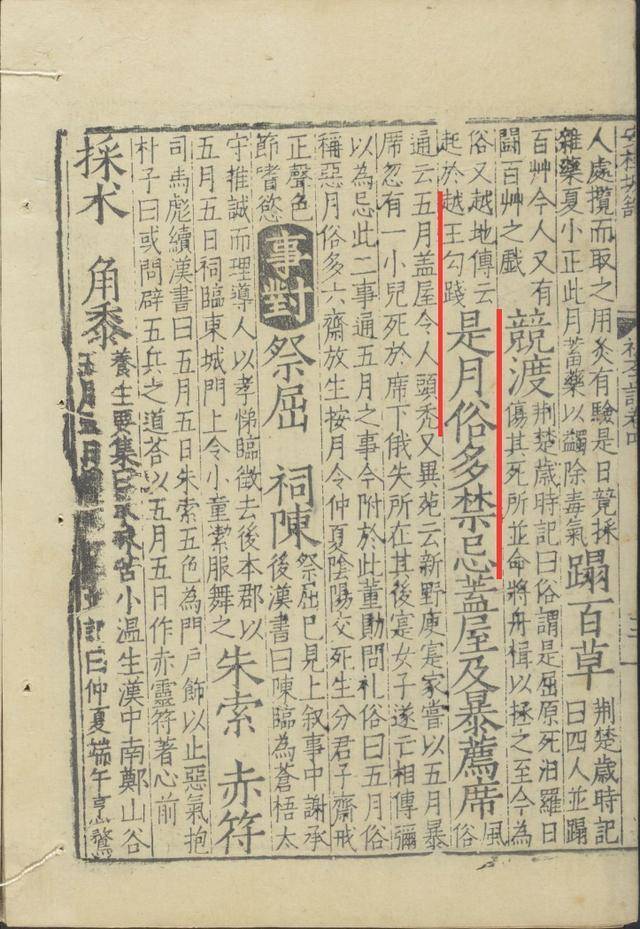 人處攬而取之用灸有驗是日競採
雜藥夏小正此月蓄藥以蠲除毒氣
蹋百草
荊楚歲時記
曰四人並蹋
百艸今人又有
鬪百艸之戲
競渡
荊楚歲時記曰俗謂是屈原死汨羅日
傷其死所並命將舟楫以拯之至今為
俗又越地傳云
起於越王勾踐
是月俗多禁忌蓋屋及暴薦席
風
俗
通云五月盖屋令人頭禿又異苑云新野庾寔家嘗以五月暴
席忽有一小兒死於席下俄失所在其後寔女子遂亡相傳彌
以為忌此二事通五月之事今附於此董勛問礼俗曰五月俗
稱惡月俗多六齋放生按月令仲夏陰陽交死生分君子齋戒
正聲色
節嗜慾
事對
祭屈
祠陳
祭屈已見上叙事中謝承
後漢書曰陳臨為蒼梧太
守推誠而理導人以孝悌臨徵去後本郡以
五月五日祠臨東城門上令小童潔服舞之
朱索
赤符
司馬彪續漢書曰五月五日朱索五色為門戶飾以止惡氣抱
朴子曰或問辟五兵之道荅以五月五日作赤靈符著心前
採朮
角黍
養生要集曰朮味苦小溫生漢中南鄭山谷
五月五日 記曰仲夏端午烹鶩